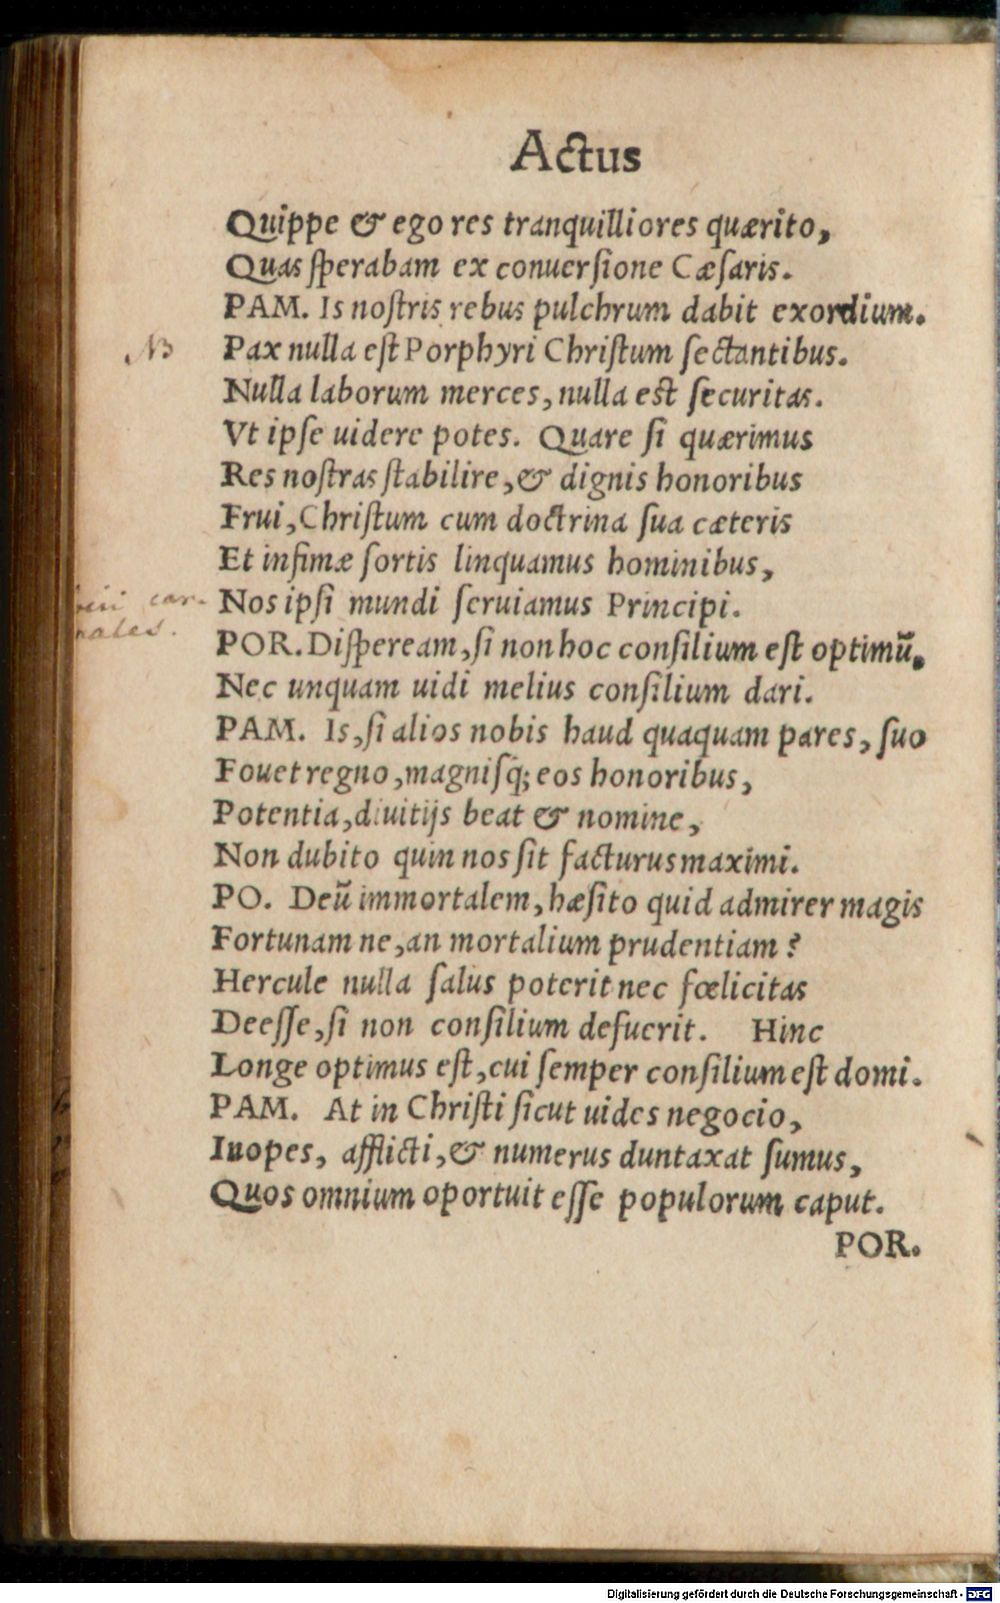 Actus
Quippe & ego res tranquilliores quærito,
Quas ſperabam ex conuerſione Cæſaris.
PAM. Is noſtris rebus pulchrum dabit exordium.
NB
Pax nulla eſt Porphyri Chriſtum ſectantibus.
Nulla laborum merces, nulla est ſecuritas.
Vt ipſe uidere potes. Quare ſi quærimus
Res noſtras ſtabilire, & dignis honoribus
Frui, Chriſtum cum doctrina ſua cæteris
Et infimæ ſortis linquamus hominibus,
car-
nales.
Nos ipſi mundi ſeruiamus Principi.
POR. Diſpeream, ſi non hoc conſilium eſt optimū.
Nec unquam uidi melius conſilium dari.
PAM. Is, ſi alios nobis haud quaquam pares, ſuo
Fouet regno, magniſq; eos honoribus,
Potentia, diuitijs beat & nomine,
Non dubito quin nos ſit facturus maximi.
PO. Deū immortalem, hæſito quid admirer magis
Fortunam ne, an mortalium prudentiam?
Hercule nulla ſalus poterit nec fœlicitas
Deeſſe, ſi non conſilium defuerit. Hinc
Longe optimus eſt, cui ſemper conſilium eſt domi.
PAM. At in Chriſti ſicut uides negocio,
Inopes, afflicti, & numerus duntaxat ſumus,
Quos omnium oportuit eſſe populorum caput.
POR.
Digitalisierung gefördert durch die Deutsche Forschungsgemeinschaft - DFG